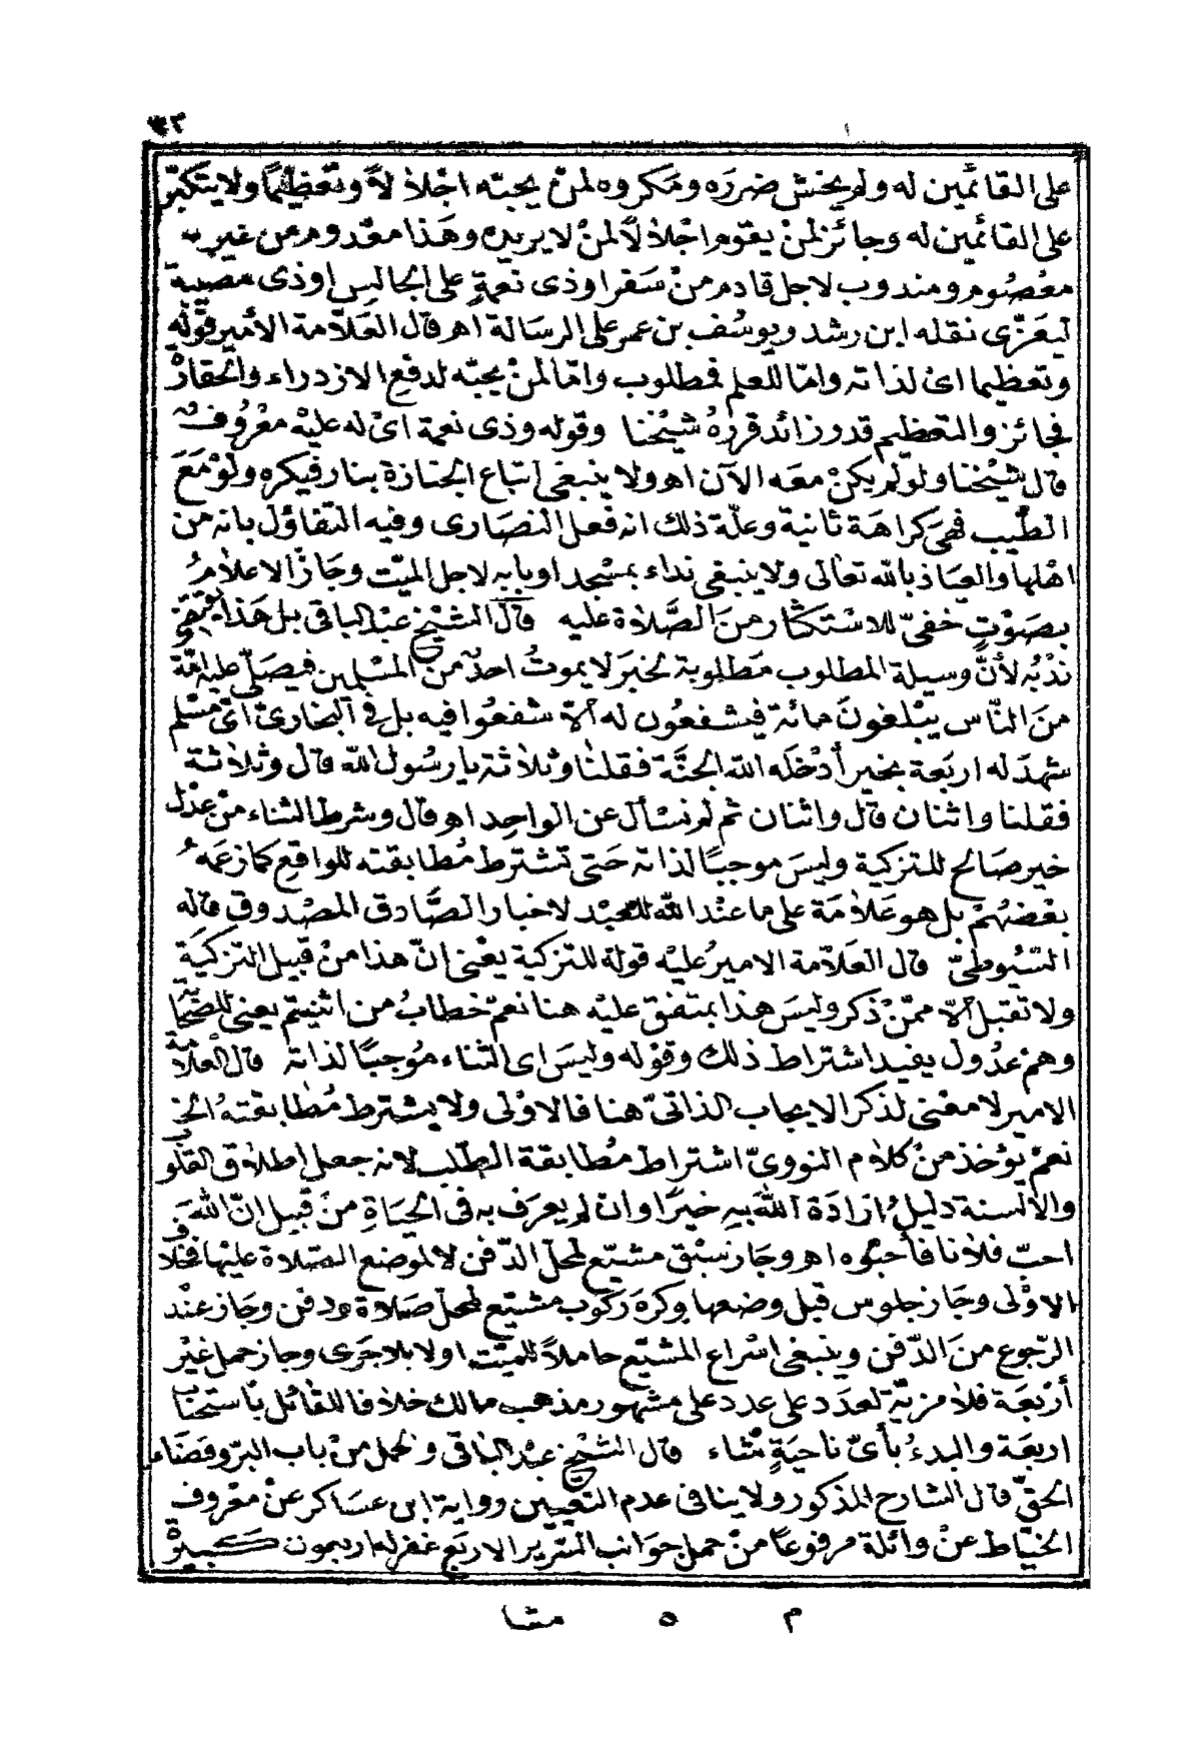 ٣٣
على القائمين له ولم يخش ضرره ومكروه لمنْ يحبّه اجْلاٰلاً وتعْظيماً ولا يتكبّر
على القائمين له وجائز لمنْ يقوم اجْلاٰلاً لمنْ لا يريده وهَذا معْدوم من غير
معْصُوم ومندوب لاجل قادم منْ سَفر او ذى نعمةٍ على الجالسِ او ذى مصيبة
ليعَزّى نقله ابن رشد ويوسُف بن عمر على الرسالة اهـ قال العَلاّمة الأمير قوْله
وتعظيما اىْ لذاته وامّا للعلم فمطلوب وامّا لمنْ يحبّه لدفع الازدراء والحقارة
فجائز والتعْظيم قدر زائد قررهُ شيْخنا وقوله وذى نعمة اىْ له عليْه معْرُوف
قال شيْخنا ولو لم يكنْ معَه الآن اهـ ولا ينبغى اتباع الجنازة بنار فيكره ولوْ معَ
الطّيب فهىَ كراهَة ثانية وعلّة ذلك انه فعل النصَارى وفيه التفاؤل بانه من
اهْلها والعيَاذ بالله تعالى ولا ينبغى نداء بمسْجد او بابه لاجل الميّت وجَازَ الاعلاٰمُ
بصَوْتٍ خفىّ للاسْتكثار منَ الصَّلاٰة عليه قال الشيْخ عبْد الباقى بل هَذا يقتضى
ندْبُه لأنَّ وسيلة المطلوب مَطلوبة لخبَر لا يموتُ احدٌ منَ المسْلمين فيصَلّى عليه امّة
منَ النّاس يبْلغونَ مائة فيشفعُون له الاّ شفعُوا فيه بل فى البخارىّ اىّ مسْلم
شهدَ له اربَعة بخير أدْخلَه الله الجنَّة فقلنا وثلاٰثة يا رسُول الله قال وثلاٰثة
فقلنا واثنان قال واثنان ثم لم نسْأل عن الواحِد اهـ قال وشرط الثناء منْ عدْل
خير صَالح للتزكية وليسَ موجبًا لذاته حَتى تشترط مُطابقته للواقع كما زعمَهُ
بعْضهُمْ بل هو عَلاٰمَة على ما عنْد الله للعبْد لاخبار الصَّادق المصْدوق قاله
السّيُوطىّ قال العَلاّمة الاميرُ عليْه قوله للتزكية يعْنى انّ هذا منْ قبيل التزكيَة
ولا تقبل الاّ ممّنْ ذكر وليسَ هذا بمتفق عليْه هنا نعمْ خطابُ من اثنيتم يعنى للصّحَابة
وهمْ عدُول يفيد اشتراط ذلك وقوْله وليسَ اى الثناء مُوجبًا لذاته قال العْلاّمة
الامير لا معْنى لذكر الايجاب الذاتىّ هنا فالاوْلى ولا يشترط مُطابقتهُ الخ
نعمْ يؤخذ منْ كلاٰم النووىّ اشتراط مُطابقة الطّلب لانه جعل اطلاٰق القلُوب
والألسنة دليلُ ارَادَة اللهَ به خيرًا وان لم يعرَف به فى الحيَاةِ منْ قبيل انّ اللهَ
احبّ فلاٰنا فأحبّوه اهـ وجَاز سَبْق مشيّع لمحلّ الدّفن لا لموضع الصّلاة عليْها فخلاف
الاوْلى وجَاز جلوس قبل وضعها وكرهَ ركوب مشيّع لمحلّ صَلاٰة ودفن وجَاز عنْد
الرّجوع منَ الدّفن وينبغى اسْراع المشيّع حاملاً للميّت اولا بلا جَرى وجاز حمل غيْر
أرْبعَة فلاٰ مزيّة لعدَد على عدد على مشهور مذهب مالك خلاٰفا للقائل باسْتحبَاب
اربعَة والبدءُ بأىّ ناحيَةٍ شاء قال الشيْخ عبْد الباقى والحمل منْ باب البرّ وقضَاء
الحقّ قال الشارح المذكور ولا ينافى عدم التعْيين رواية ابن عسَاكر عنْ معْروف
الخيّاط عنْ واثلة مرفوعاً منْ حمل جوَانب السّرير الاربَع غفر له اربعون كبيرة
م ٥ مشا